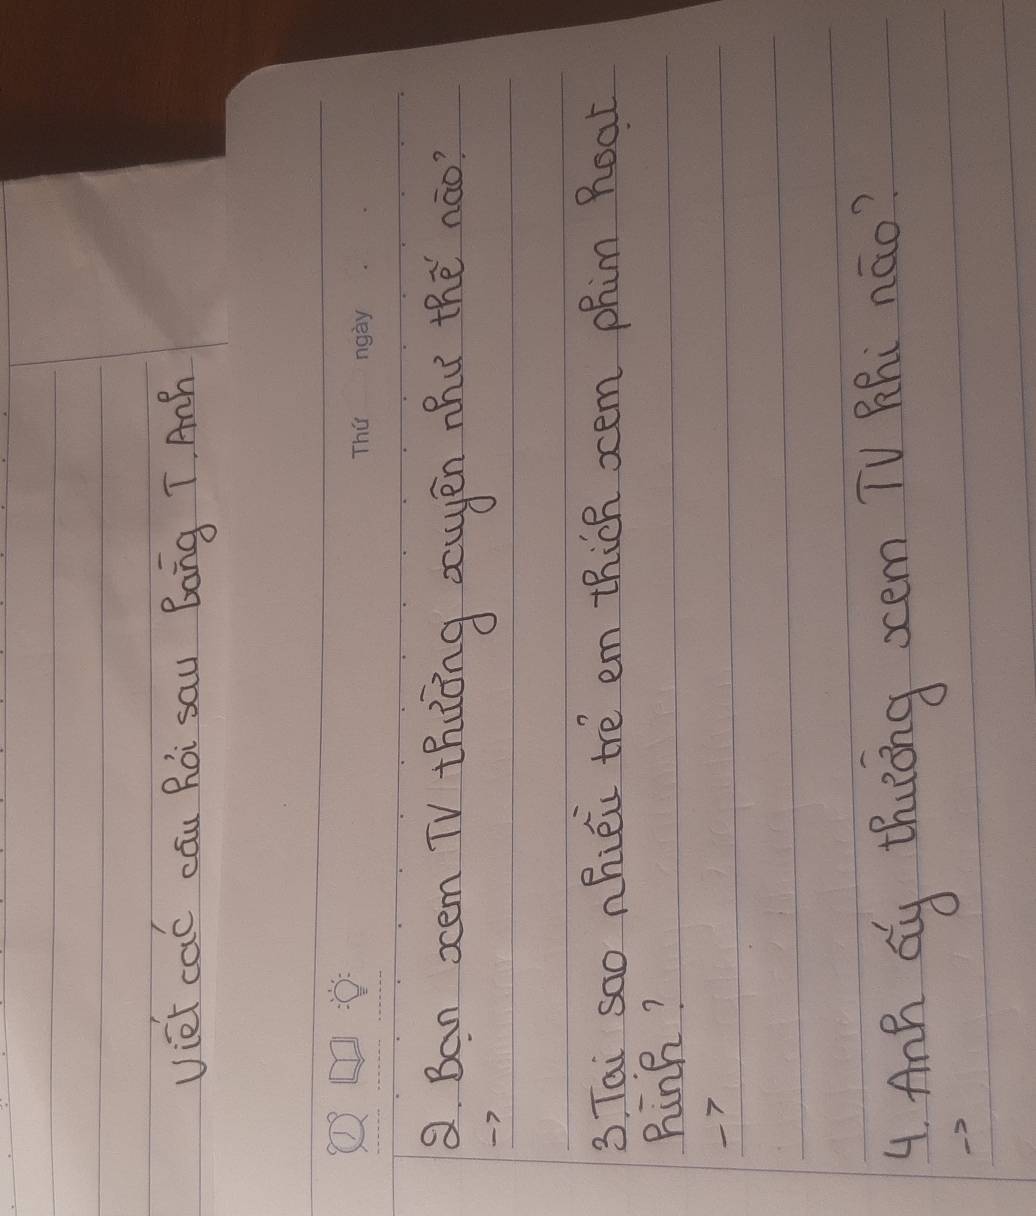 Viết các câu hỏi sau bằng T.Anh
Thứ ngày
2. Bạn xem TV thường xuyên như thế nào?
->
3. Tại sao nhiều trẻ em thích xem phim hoạt
hình?
->
4. Anh ấy thường xem TV khi nào?
->